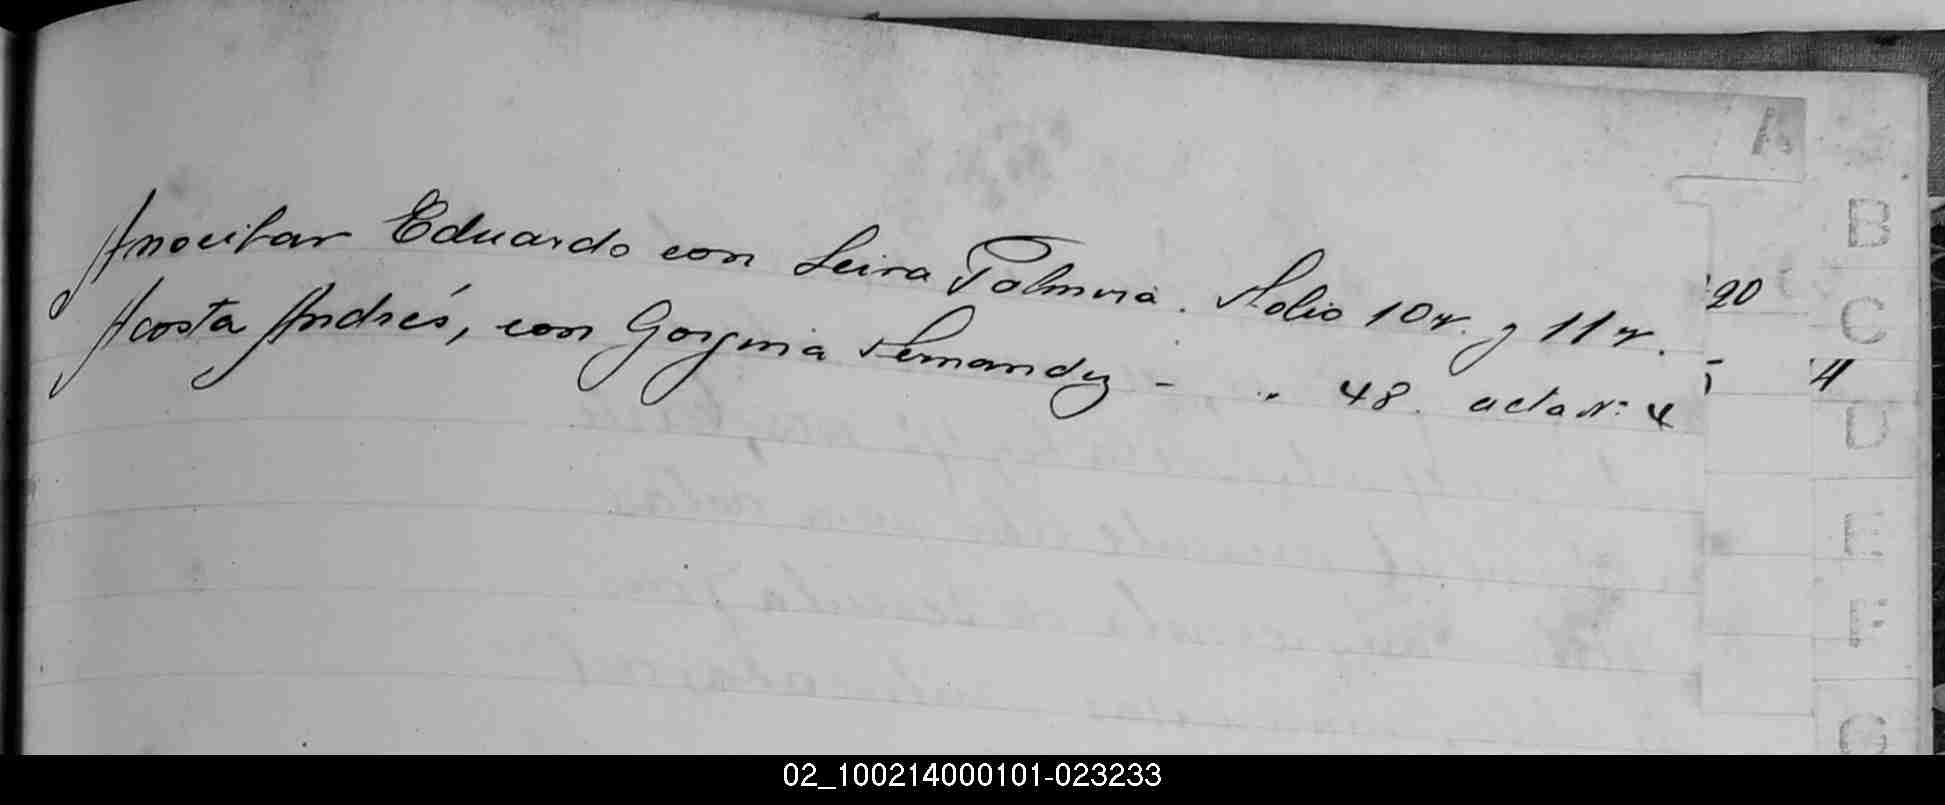 Anocibar Eduardo con Leira Palmira. Folio 10v. y 11v.
Acosta Andrés, con Gorgonia Fernandez - " 48. acta Nº 4
20
A
B
C
D
E
F
G
02_100214000101-023233